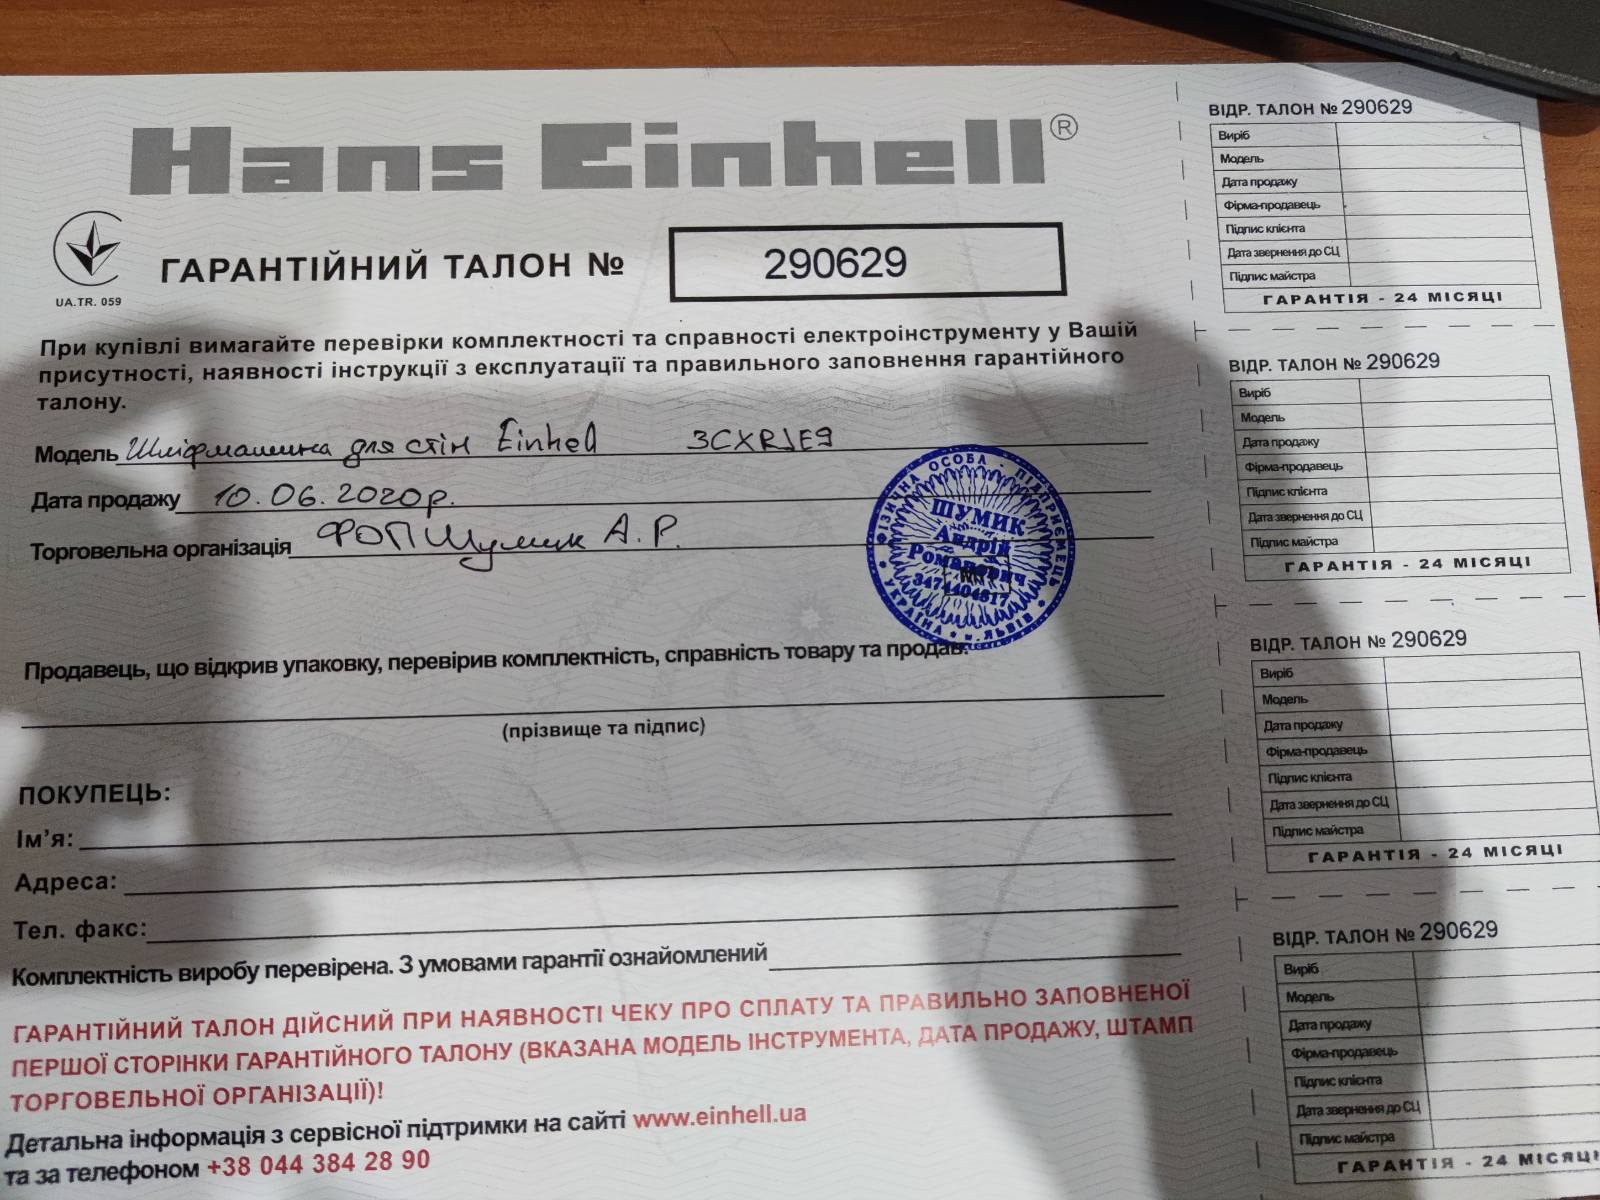 Hans Einhell®
UA.TR. 059
ГАРАНТІЙНИЙ ТАЛОН № 290629
При купівлі вимагайте перевірки комплектності та справності електроінструменту у Вашій
присутності, наявності інструкції з експлуатації та правильного заповнення гарантійного
талону.
Модель Шліфмашина для стін Einhell 3CXRJE9
Дата продажу 10.06.2020р.
Торговельна організація ФОП Шумик А.Р.
ФІЗИЧНА ОСОБА - ПІДПРИЄМЕЦЬ
ШУМИК
Андрій
Романович
МП
3474404817
УКРАЇНА * м. ЛЬВІВ *
Продавець, що відкрив упаковку, перевірив комплектність, справність товару та продав:
(прізвище та підпис)
ПОКУПЕЦЬ:
Ім'я:
Адреса:
Тел. факс:
Комплектність виробу перевірена. З умовами гарантії ознайомлений
ГАРАНТІЙНИЙ ТАЛОН ДІЙСНИЙ ПРИ НАЯВНОСТІ ЧЕКУ ПРО СПЛАТУ ТА ПРАВИЛЬНО ЗАПОВНЕНОЇ
ПЕРШОЇ СТОРІНКИ ГАРАНТІЙНОГО ТАЛОНУ (ВКАЗАНА МОДЕЛЬ ІНСТРУМЕНТА, ДАТА ПРОДАЖУ, ШТАМП
ТОРГОВЕЛЬНОЇ ОРГАНІЗАЦІЇ)!
Детальна інформація з сервісної підтримки на сайті www.einhell.ua
та за телефоном +38 044 384 28 90
ВІДР. ТАЛОН № 290629
Виріб
Модель
Дата продажу
Фірма-продавець
Підпис клієнта
Дата звернення до СЦ
Підпис майстра
ГАРАНТІЯ - 24 МІСЯЦІ
ВІДР. ТАЛОН № 290629
Виріб
Модель
Дата продажу
Фірма-продавець
Підпис клієнта
Дата звернення до СЦ
Підпис майстра
ГАРАНТІЯ - 24 МІСЯЦІ
ВІДР. ТАЛОН № 290629
Виріб
Модель
Дата продажу
Фірма-продавець
Підпис клієнта
Дата звернення до СЦ
Підпис майстра
ГАРАНТІЯ - 24 МІСЯЦІ
ВІДР. ТАЛОН № 290629
Виріб
Модель
Дата продажу
Фірма-продавець
Підпис клієнта
Дата звернення до СЦ
Підпис майстра
ГАРАНТІЯ - 24 МІСЯЦІ